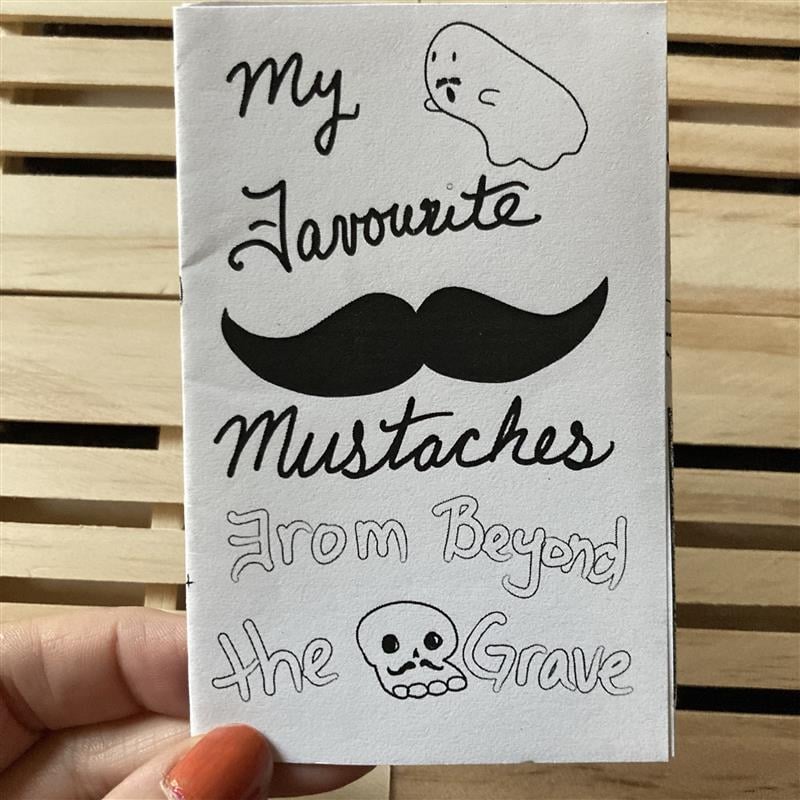 My
Favourite
Mustaches
From Beyond
the Grave